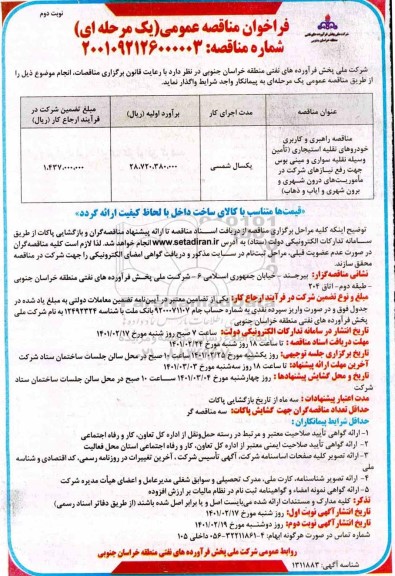 نوبت دوم
فراخوان مناقصه عمومی(یک مرحله ای)
شماره مناقصه: ۲۰۰۱۰۹۲۱۲۶۰۰۰۰۰۳
شرکت ملی پخش فرآورده های نفتی منطقه خراسان جنوبی در نظر دارد با رعایت قانون برگزاری مناقصات، انجام موضوع ذیل را
از طریق مناقصه عمومی یک مرحله‌ای به پیمانکار واجد شرایط واگذار نماید.
عنوان مناقصه
مدت اجرای کار
برآورد اولیه (ریال)
مبلغ تضمین شرکت در
فرآیند ارجاع کار (ریال)
مناقصه راهبری و کاربری
خودروهای نقلیه استیجاری (تأمین
وسیله نقلیه سواری و مینی بوس
جهت رفع نیازهای شرکت در
مأموریت‌های درون شهری و
برون شهری و ایاب و ذهاب)
یکسال شمسی
۲۸.۷۲۰.۳۸۰.۰۰۰
۱.۴۳۷.۰۰۰.۰۰۰
«قیمت‌ها متناسب با کالای ساخت داخل با لحاظ کیفیت ارائه گردد»
توضیح اینکه کلیه مراحل برگزاری مناقصه از دریافت اسناد مناقصه تا ارائه پیشنهاد مناقصه‌گران و بازگشایی پاکات از طریق
سامانه تدارکات الکترونیکی دولت (ستاد) به آدرس www.setadiran.ir انجام خواهد شد. لذا لازم است کلیه مناقصه‌گران
در صورت عدم عضویت قبلی، مراحل ثبت‌نام در سایت مذکور و دریافت گواهی امضای الکترونیکی را جهت شرکت در مناقصه
محقق سازند.
نشانی مناقصه‌گزار: بیرجند - خیابان جمهوری اسلامی ۶ - شرکت ملی پخش فرآورده های نفتی منطقه خراسان جنوبی
- طبقه دوم - اتاق ۲۰۴
مبلغ و نوع تضمین شرکت در فرآیند ارجاع کار: یکی از تضامین معتبر در آیین‌نامه تضمین معاملات دولتی به مبلغ یاد شده در
جدول فوق و در صورت واریز سپرده نقدی به شماره حساب جام بانک ملت با شناسه به نام شرکت ملی
پخش فرآورده های نفتی منطقه خراسان جنوبی
تاریخ انتشار در سامانه تدارکات الکترونیکی دولت: ساعت ۷ صبح روز شنبه مورخ ۱۴۰۱/۰۲/۱۷
مهلت دریافت اسناد مناقصه: تا ساعت ۱۸ روز شنبه مورخ ۱۴۰۱/۰۲/۲۴
تاریخ برگزاری جلسه توجیهی: روز یکشنبه مورخ ۱۴۰۱/۰۲/۲۵ ساعت ۱۰ صبح در محل سالن جلسات ساختمان ستاد شرکت
آخرین مهلت ارائه پیشنهاد: تا ساعت ۱۸ روز سه‌شنبه مورخ ۱۴۰۱/۰۳/۰۳
تاریخ و محل گشایش پیشنهادها: روز چهارشنبه مورخ ۱۴۰۱/۰۳/۰۴ ساعت ۱۰ صبح در محل سالن جلسات ساختمان ستاد
شرکت
مدت اعتبار پیشنهادات: سه ماه از تاریخ بازگشایی پاکات
حداقل تعداد مناقصه‌گران جهت گشایش پاکات: سه مناقصه گر
حداقل شرایط پیمانکاران:
۱- ارائه گواهی تأیید صلاحیت معتبر و مرتبط در رسته حمل‌ونقل از اداره کل تعاون، کار و رفاه اجتماعی
۲- ارائه گواهی تأیید صلاحیت ایمنی معتبر از اداره کل تعاون، کار و رفاه اجتماعی استان محل فعالیت
۳- ارائه تصویر کلیه صفحات اساسنامه شرکت، آگهی تأسیس شرکت، آخرین تغییرات در روزنامه رسمی، کد اقتصادی و شناسه
ملی
۴- ارائه تصویر شناسنامه، کارت ملی، مدرک تحصیلی و سوابق شغلی مدیرعامل و اعضای هیأت مدیره شرکت
۵- ارائه گواهی نمونه امضاء و گواهینامه ثبت نام در نظام مالیات بر ارزش افزوده
تذکر: کلیه مدارک و مستندات ارائه شده می‌بایست اصل و یا برابر اصل شده باشند (از طریق دفاتر اسناد رسمی)
تاریخ انتشار آگهی نوبت اول: روز شنبه مورخ ۱۴۰۱/۰۲/۱۷
تاریخ انتشار آگهی نوبت دوم: روز دوشنبه مورخ ۱۴۰۱/۰۲/۱۹
شماره تماس در صورت هرگونه ابهام: ۴-۰۵۶۳۲۲۱۱۸۶۱ داخلی ۱۰۵
روابط عمومی شرکت ملی پخش فرآورده های نفتی منطقه خراسان جنوبی
شناسه آگهی: ۱۳۱۱۸۸۳